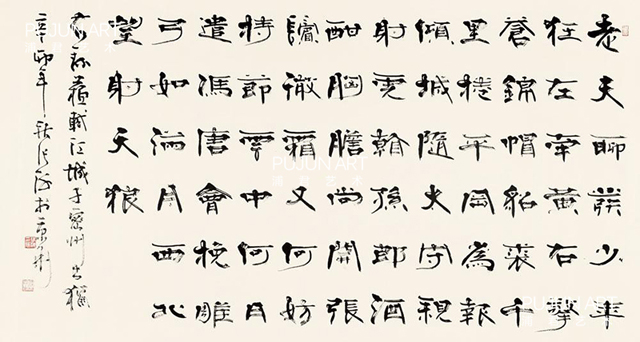 老夫聊發少年
狂左牽黃右擎
蒼錦帽貂裘千
里捲平岡為報
傾城隨太守親
射虎看孫郎酒
酣胸膽尚開張
鬢微霜又何妨
持節雲中何日
遣馮唐會挽雕
弓如滿月西北
望射天狼
蘇軾江城子密州出獵
辛卯年秋
PUJUN ART